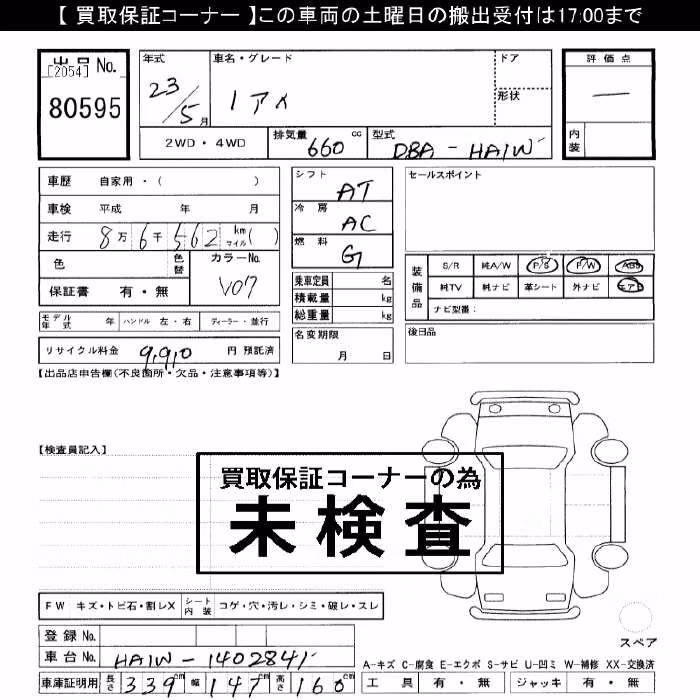 【 買取保証コーナー 】この車両の土曜日の搬出受付は17:00まで
出品 No.
[2054]
80595
年式
23/5月
車名・グレード
1 アメ
ドア
形状
評価点
—
内装
2WD・4WD
排気量 660 cc
型式 DBA - HA1W
車歴 自家用・( )
車検 平成 年 月
走行 8万 6千 562 km マイル ( )
色
色替
カラーNo.
V07
保証書 有・無
シフト AT
冷房 AC
燃料 G
乗車定員 名
積載量 kg
総重量 kg
セールスポイント
装備品
S/R 純A/W P/S P/W ABS
純TV 純ナビ 革シート 外ナビ エアB
ナビ型番:
モデル年式 年 ハンドル 左・右 ディーラー・並行
名変期限
月 日
後日品
リサイクル料金 9,910 円 預託済
【出品店申告欄(不良箇所・欠品・注意事項等)】
【検査員記入】
買取保証コーナーの為
未検査
FW キズ・トビ石・割レX
シート内装 コゲ・穴・汚レ・シミ・破レ・スレ
スペア
登録 No.
車台 No. HA1W-1402841
A-キズ C-腐食 E-エクボ S-サビ U-凹ミ W-補修 XX-交換済
車庫証明用 長さ 339cm 幅 147cm 高さ 160cm
工具 有・無 ジャッキ 有・無